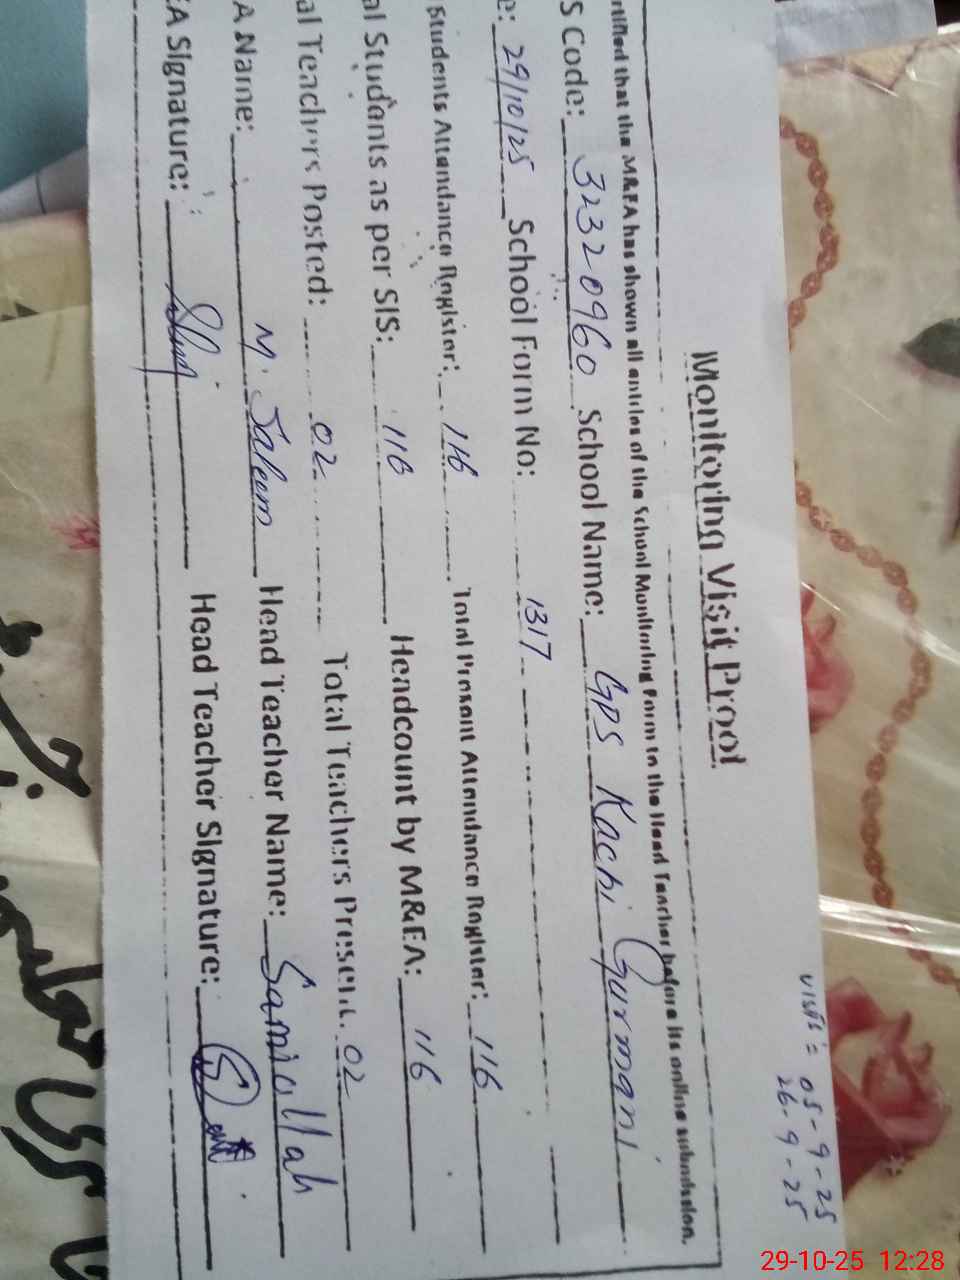 Monitoring Visit Proof
rtified that the M&EA has shown all entries of the School Monitoring Form to the Head Teacher before its online submission.
S Code: 32320960 School Name: GPS Kachi Gurmani
e: 29/10/25 School Form No: 1317
Students Attendance Register: 116 Total Present Attendance Register: 116
al Students as per SIS: 116 Headcount by M&EA: 116
al Teachers Posted: 02 Total Teachers Present. 02
A Name: M. Saleem Head Teacher Name: Samiullah
EA Signature: Head Teacher Signature:
visit = 05-9-25
26-9-25
29-10-25 12:28